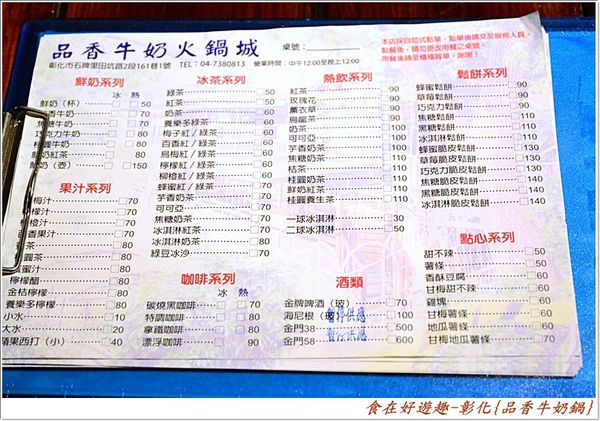 品香牛奶火鍋城
桌號:
彰化市石牌里田坑路2段161巷1號 TEL:04-7380813 營業時間:中午12:00至晚上12:00
本店採自助式點單,點單後請交至服務人員,
點餐後,請勿更改用餐之桌號
用餐後請至櫃檯買單,謝謝!
鮮奶系列
冰 熱
鮮奶(杯) 50
香牛奶 70
焦糖牛奶 70
巧克力牛奶 70
桂圓牛奶 80
鮮奶紅茶 80
奶(壺) 150
果汁系列
梅汁 70
檸檬汁 70
橙汁 70
百香果汁 70
茶 80
蜜汁 80
檸檬醋 80
金桔檸檬 80
養樂多檸檬 80
小水 10
大水 20
蘋果西打(小) 40
冰茶系列
綠茶 50
紅茶 50
奶茶 60
養樂多綠茶 60
梅子紅/綠茶 60
百香紅/綠茶 60
烏梅紅/綠茶 60
檸檬紅/綠茶 60
柳橙紅/綠茶 60
蜂蜜紅/綠茶 60
芋香奶茶 70
焦糖奶茶 70
冰淇淋紅茶 80
冰淇淋奶茶 80
綠豆冰沙 70
咖啡系列
冰 熱
碳燒黑咖啡 70
特調咖啡 80
拿鐵咖啡 80
漂浮咖啡 90
熱飲系列
紅茶 70
玫瑰花 70
薰衣草 70
烏龍茶 70
奶茶 70
可可亞 70
芋香奶茶 70
焦糖奶茶 70
桔茶 70
桂圓奶茶 70
鮮奶紅茶 70
桂圓養生茶 70
一球冰淇淋 30
二球冰淇淋 50
酒類
金牌啤酒(玻) 70
海尼根(玻) 暫停供應
金門38 500
金門58 600
鬆餅系列
蜂蜜鬆餅 90
草莓鬆餅 90
巧克力鬆餅 90
焦糖鬆餅 90
黑糖鬆餅 90
冰淇淋鬆餅 110
蜂蜜脆皮鬆餅 120
草莓脆皮鬆餅 120
巧克力脆皮鬆餅 120
焦糖脆皮鬆餅 120
黑糖脆皮鬆餅 120
冰淇淋脆皮鬆餅 140
點心系列
甜不辣 50
薯條 50
香酥豆腐 50
甘梅甜不辣 60
雞塊 60
甘梅薯條 60
地瓜薯條 60
甘梅地瓜薯條 70
食在好遊趣-彰化{品香牛奶鍋}